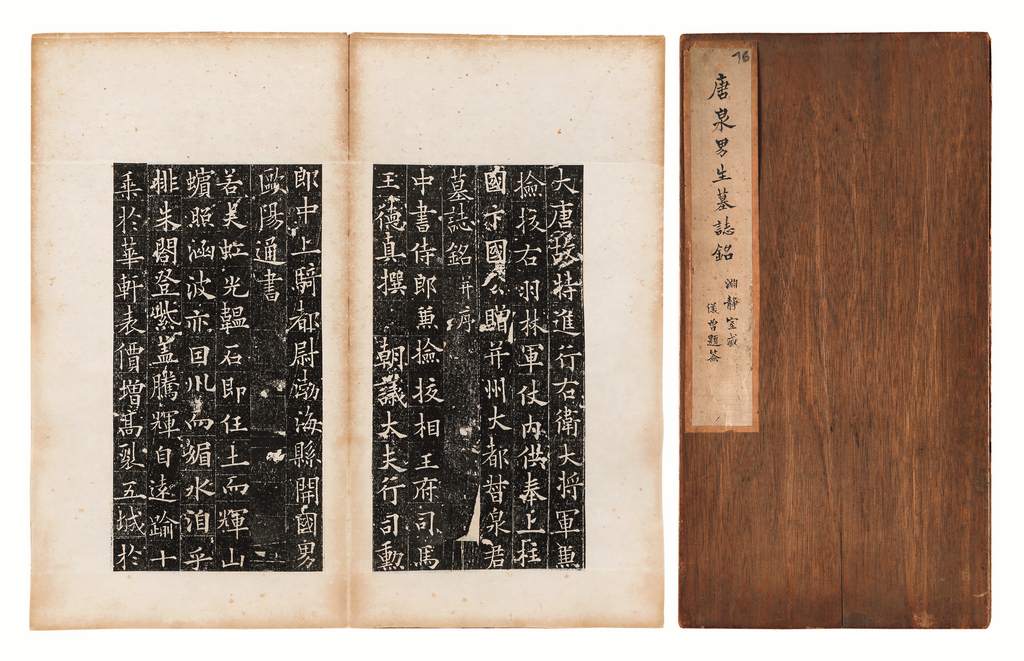 76
唐泉男生墓誌銘
淵靜室藏
儀曾題簽
大唐故特進行右衛大将軍兼
撿挍右羽林軍仗內供奉上柱
國卞國公贈并州大都督泉君
墓誌銘并序
中書侍郎兼撿挍相王府司馬
王德真撰 朝議大夫行司勳
郎中上騎都尉渤海縣開國男
歐陽通書
若夫虹光韞石即任土而輝山
蠙照涵波亦因川而媚水洎乎
排朱閣登紫蓋騰輝自遠踰十
乗於華軒表價增高裂五城於